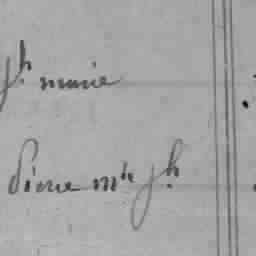 Jh marie
Pierre mie Jh